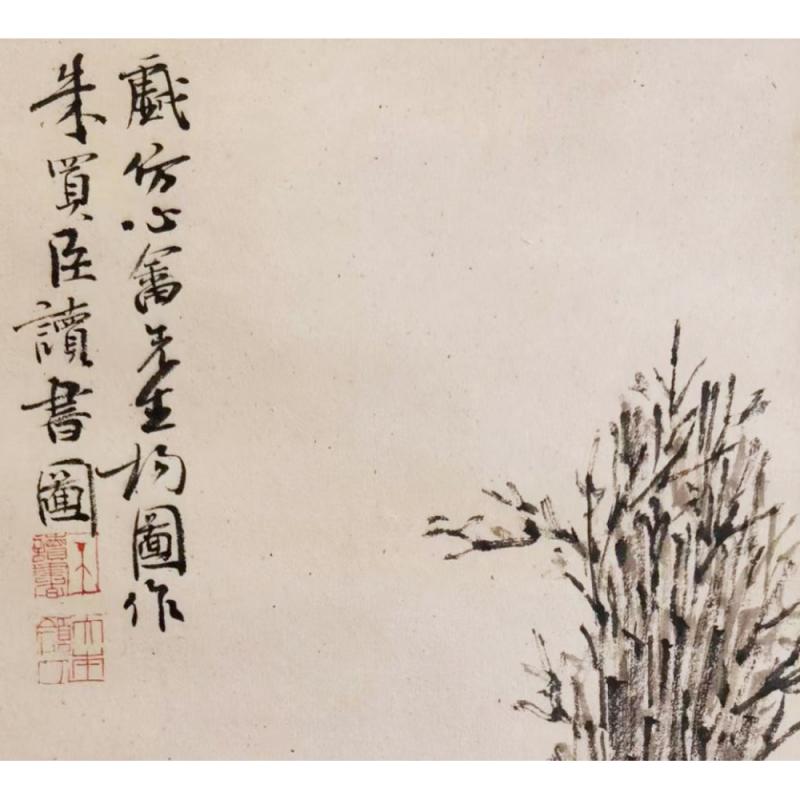 戲仿心畬先生构圖作
朱買臣讀書圖